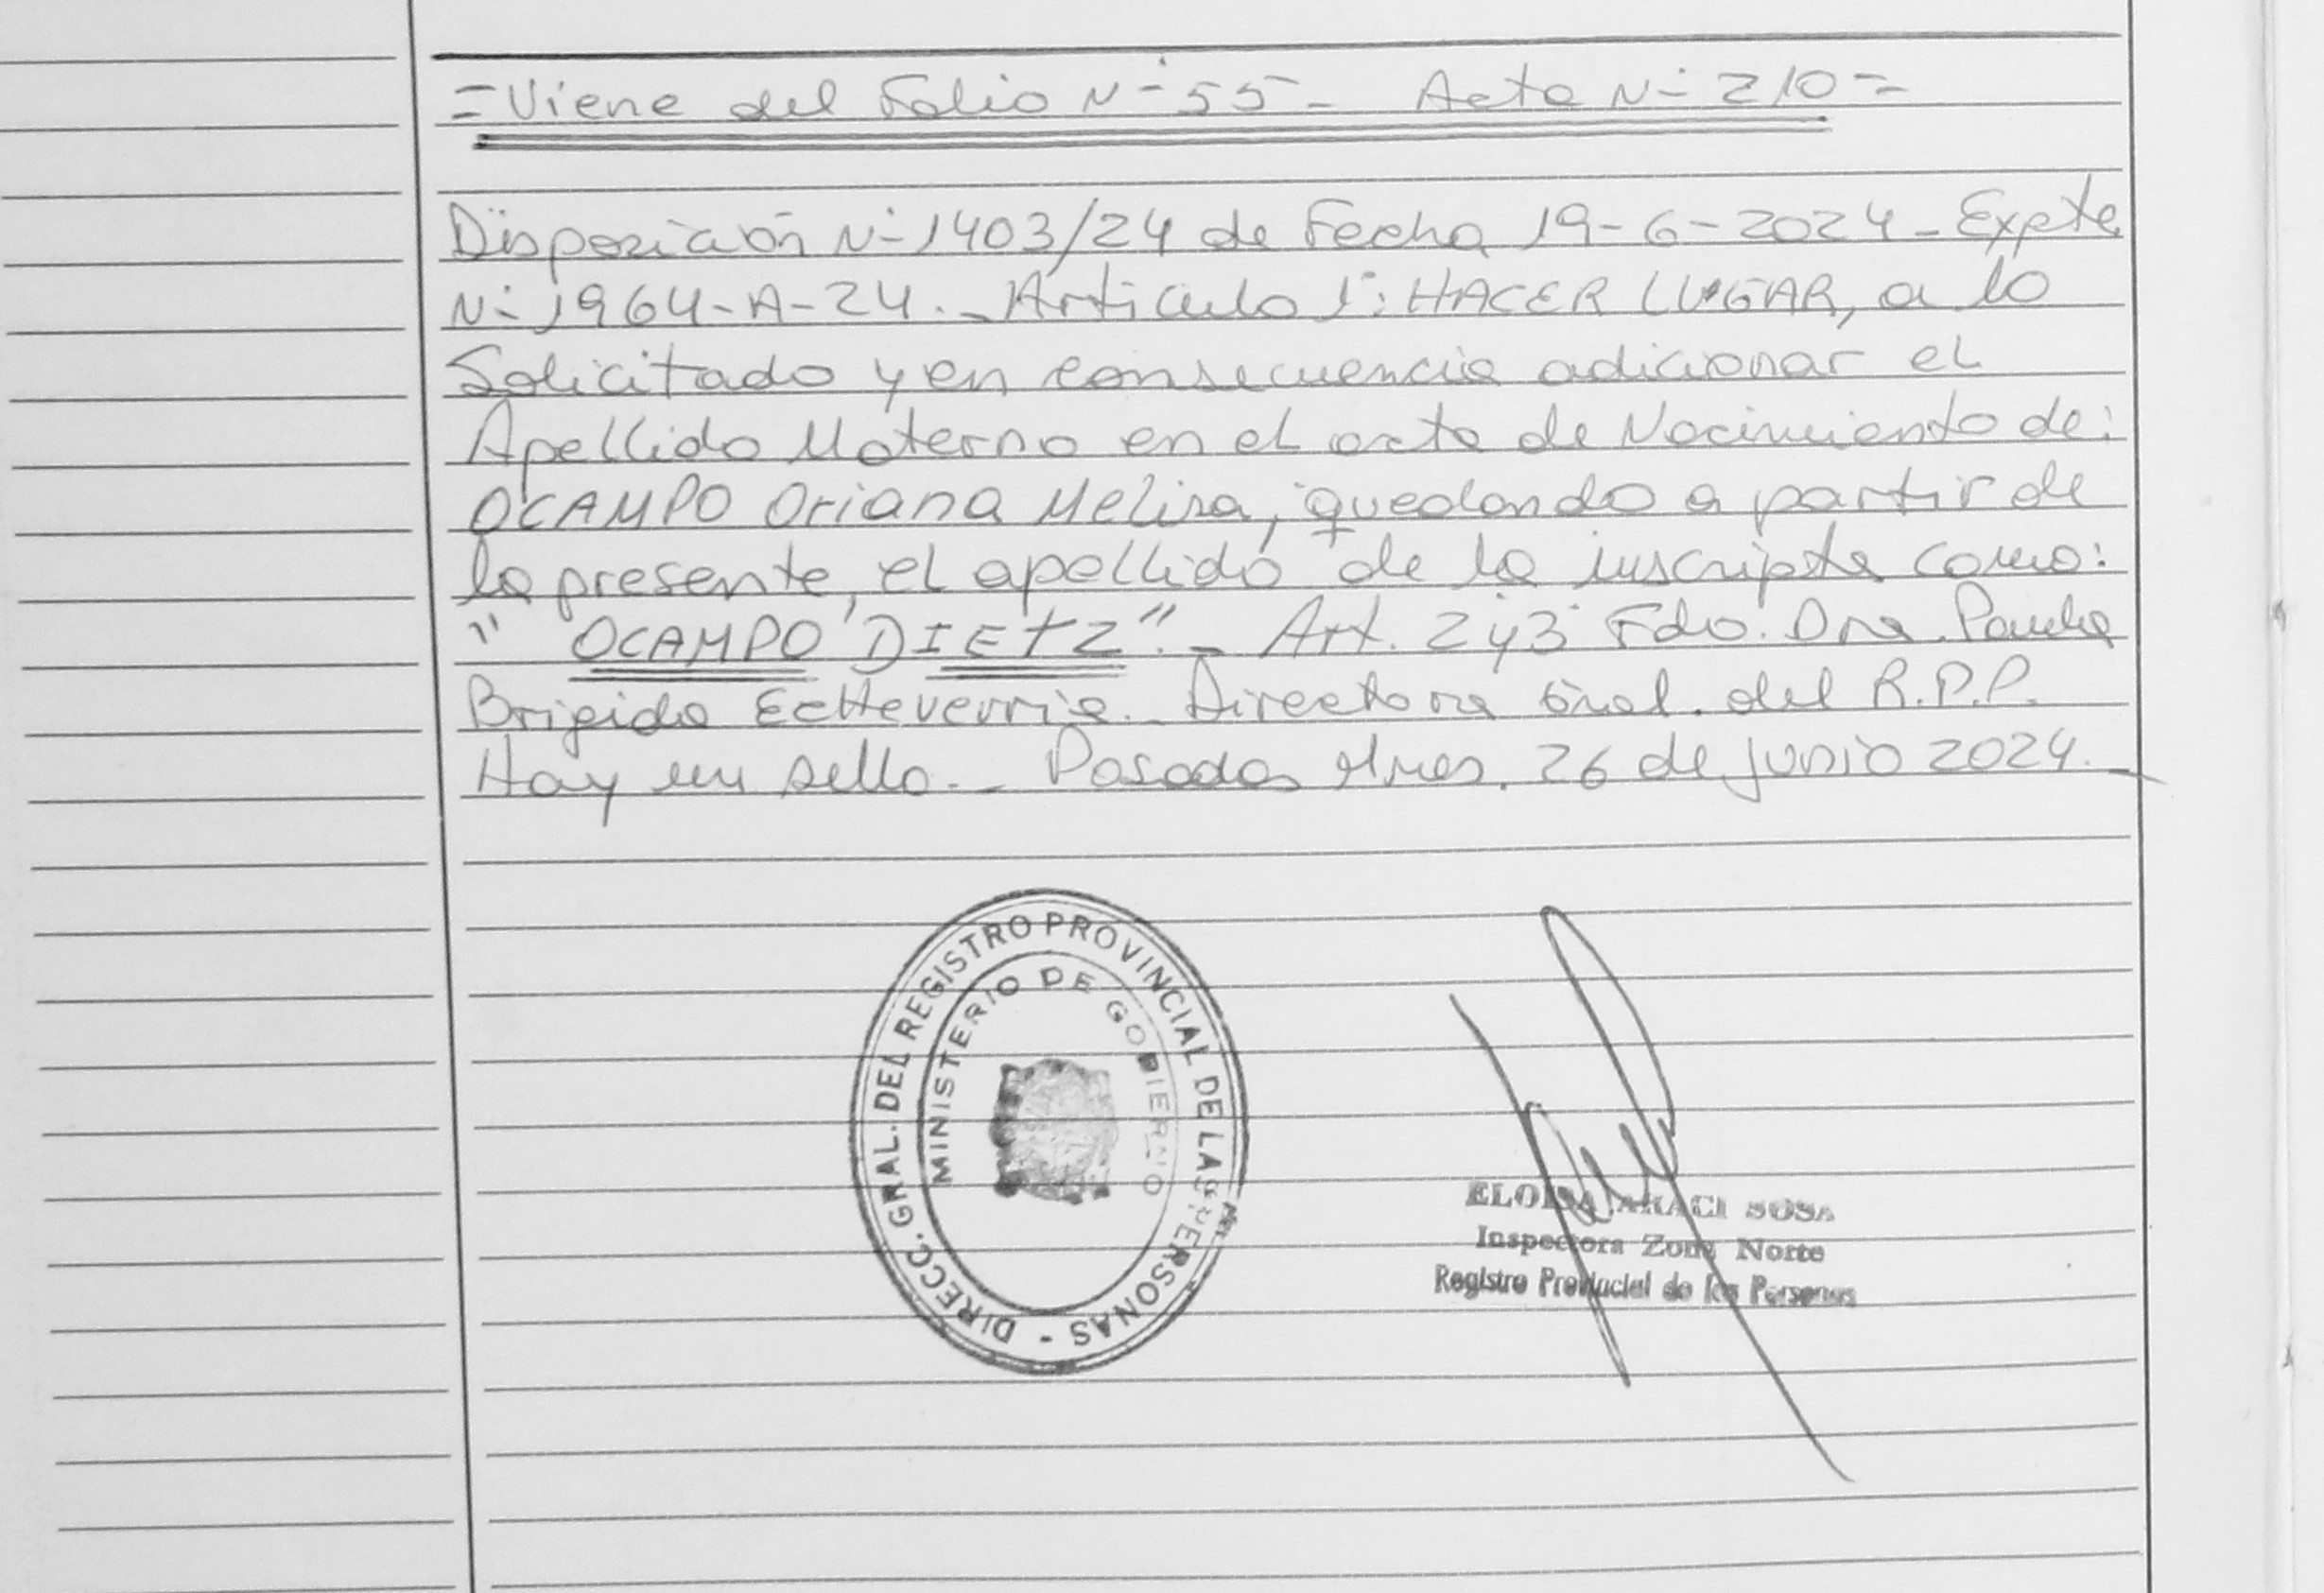 =Viene del Folio N° 55 - Acta N° 210=
Disposición N° 1403/24 de Fecha 19-6-2024 - Expte
N° 1964-A-24.- Articulo 1°: HACER LUGAR, a lo
Solicitado y en consecuencia adicionar el
Apellido Materno en el acta de Nacimiento de:
OCAMPO Oriana Melisa, quedando a partir de
la presente, el apellido de la inscripta como:
" OCAMPO DIETZ".- Art. 2 y 3 Fdo. Dra. Paula
Brigida Echeverria. Directora Gral. del R.P.P.
Hay un sello.- Posadas Mnes. 26 de junio 2024.-
DIRECC. GRAL. DEL REGISTRO PROVINCIAL DE LAS PERSONAS -
MINISTERIO DE GOBIERNO
ELOISA ARACI SOSA
Inspectora Zona Norte
Registro Provincial de las Personas